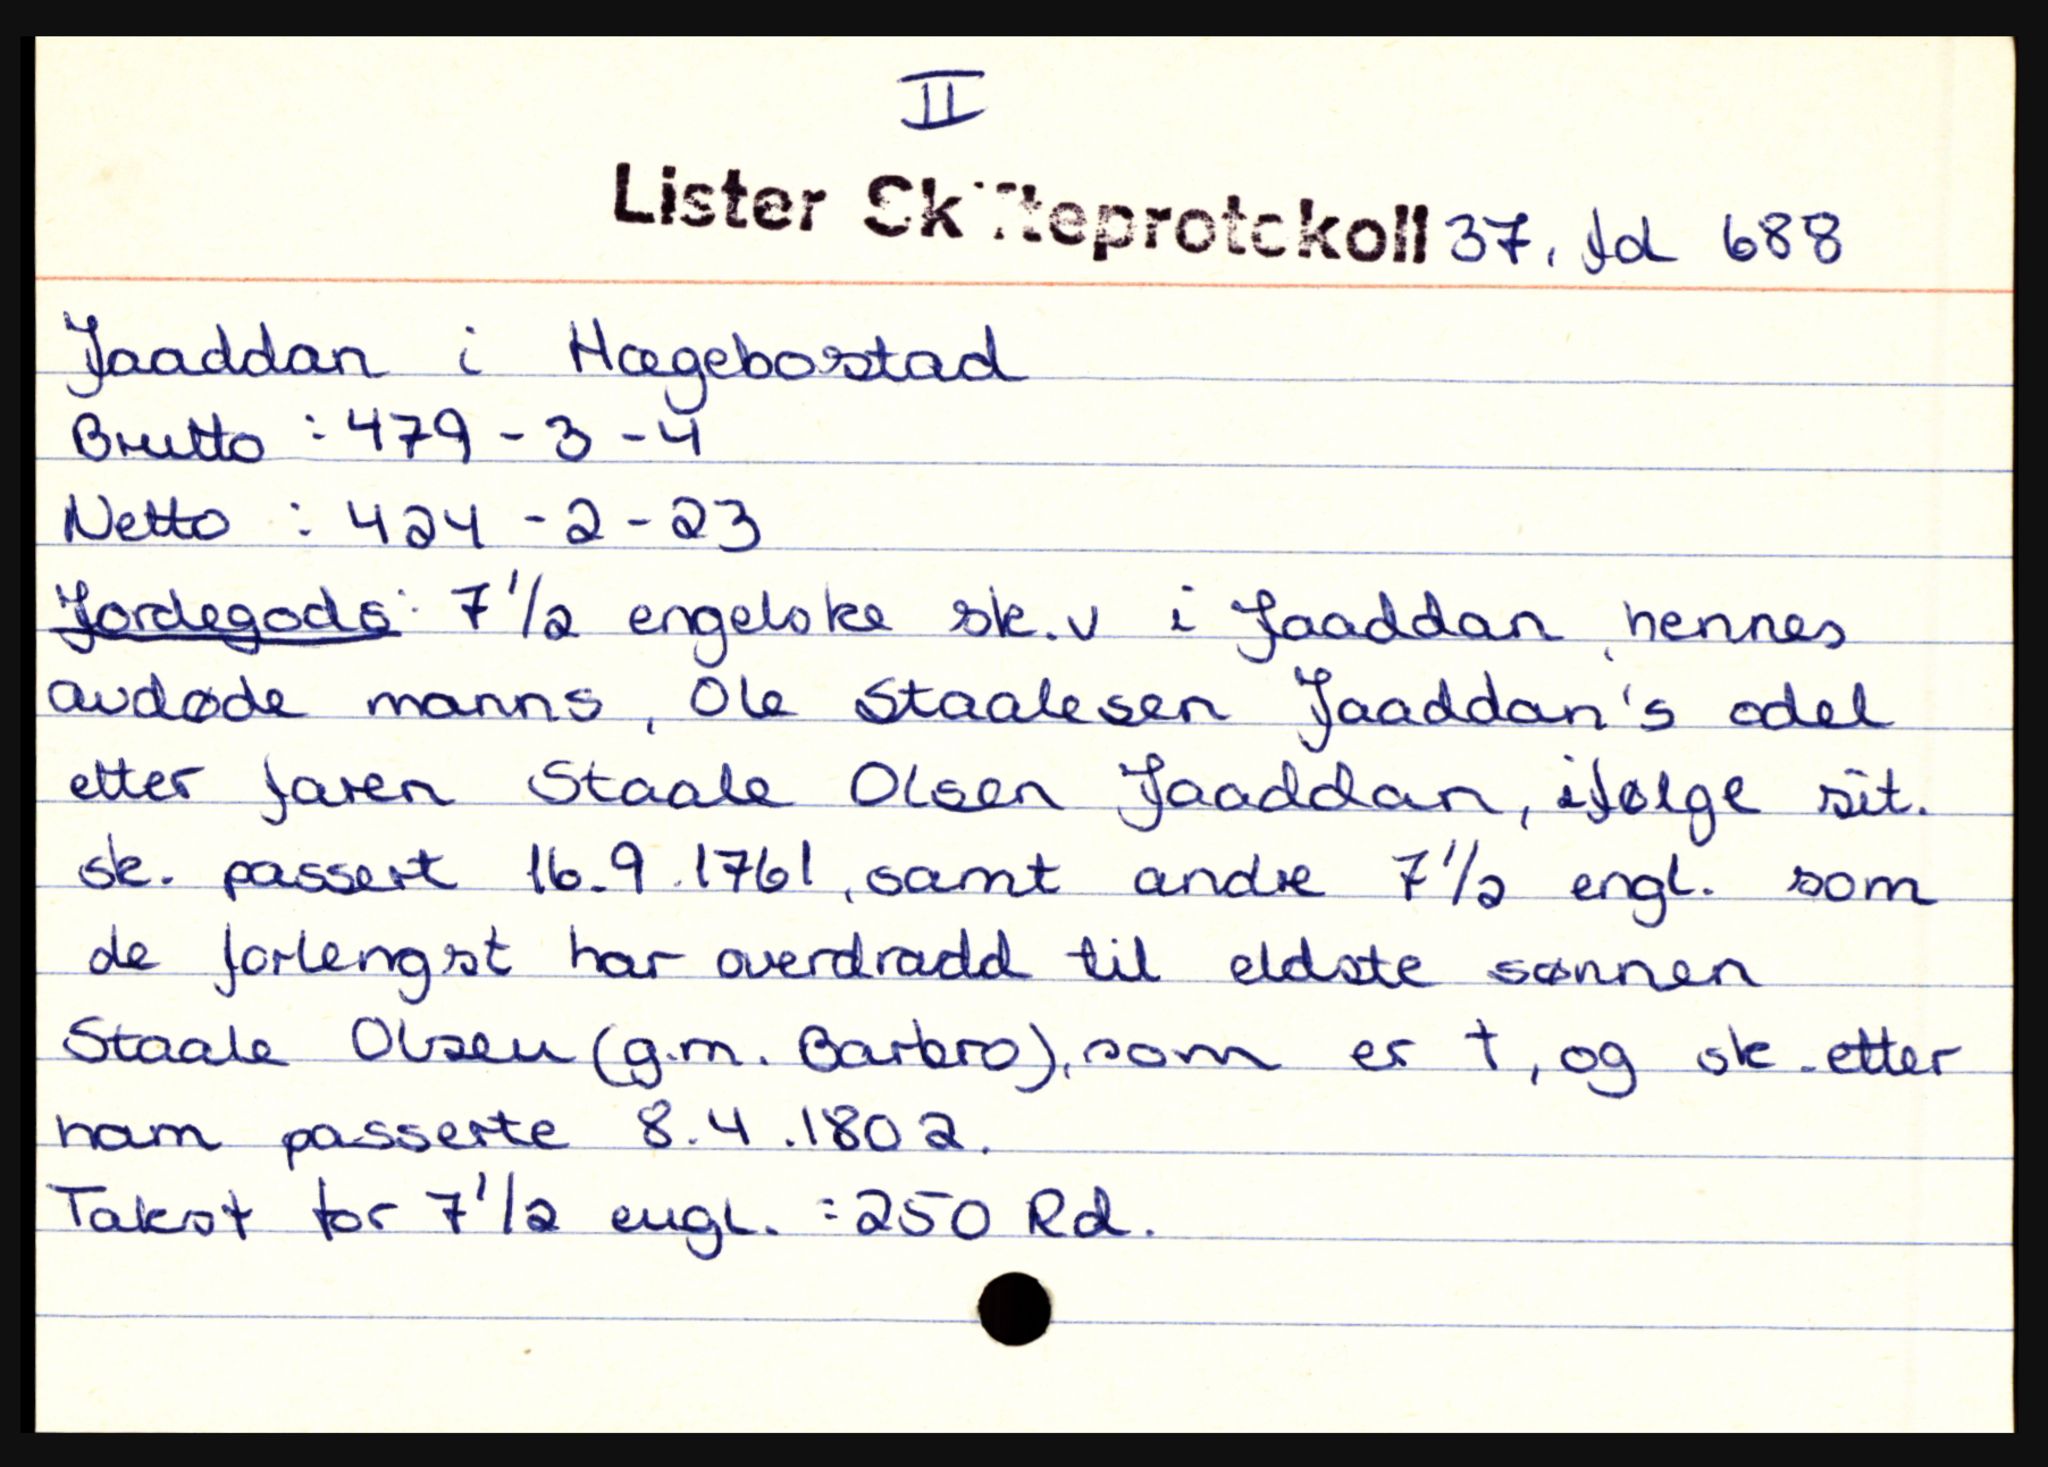 II
Lister Skifteprotokoll 37, fol 688
Jaaddan i Hægebostad
Brutto : 479 - 3 - 4
Netto : 424 - 2 - 23
Jordegods: 7 1/2 engelske sk.v i Jaaddan, hennes
avdøde manns, Ole Staalesen Jaaddan's odel
etter faren Staale Olsen Jaaddan, ifølge sit.
sk. passert 16.9.1761, samt andre 7 1/2 engl. som
de forlengst har overdradd til eldste sønnen
Staale Olsen (g.m. Barbro), som er †, og sk. etter
ham passerte 8.4.1802.
Takst for 7 1/2 engl. : 250 Rd.